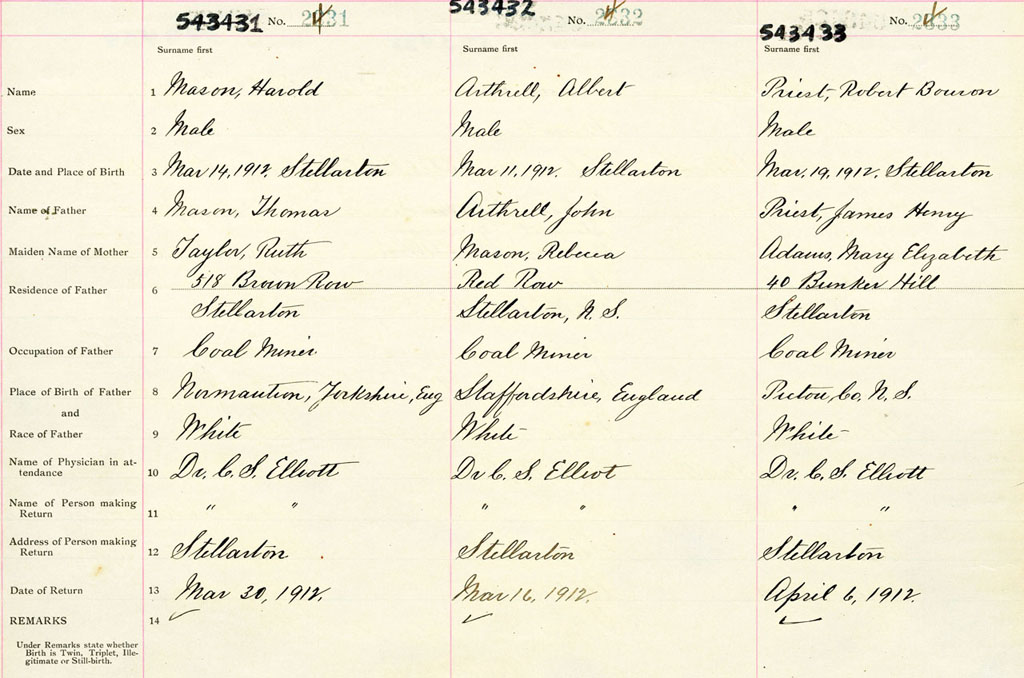 543431 No. 2231 543432 No. 2232 543433 No. 2233
Surname first Surname first Surname first
Name 1 Mason, Harold Arthrell, Albert Priest, Robert Bowron
Sex 2 Male Male Male
Date and Place of Birth 3 Mar 14, 1912. Stellarton Mar 11, 1912. Stellarton Mar. 19, 1912. Stellarton
Name of Father 4 Mason, Thomas Arthrell, John Priest, James Henry
Maiden Name of Mother 5 Taylor, Ruth Mason, Rebecca Adams, Mary Elizabeth
518 Brown Row Red Row 40 Bunker Hill
Residence of Father 6
Stellarton Stellarton, N. S. Stellarton
Occupation of Father 7 Coal Miner Coal Miner Coal Miner
Place of Birth of Father 8 Normantion, Yorkshire, Eng Staffordshire, England Pictou, Co. N. S.
and
Race of Father 9 White White White
Name of Physician in at-
tendance 10 Dr. C. S. Elliott Dr C. S. Elliot Dr. C. S. Elliott
Name of Person making
Return 11 " " " " " "
Address of Person making
Return 12 Stellarton Stellarton Stellarton
Date of Return 13 Mar 30, 1912. Mar 16, 1912. April 6, 1912.
REMARKS 14
Under Remarks state whether
Birth is Twin, Triplet, Ille-
gitimate or Still-birth.